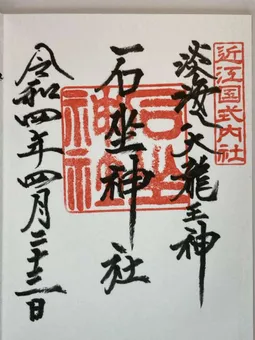 近江国式内社
淡海八大龍王神
石坐神社
石坐神社
令和四年四月二十三日